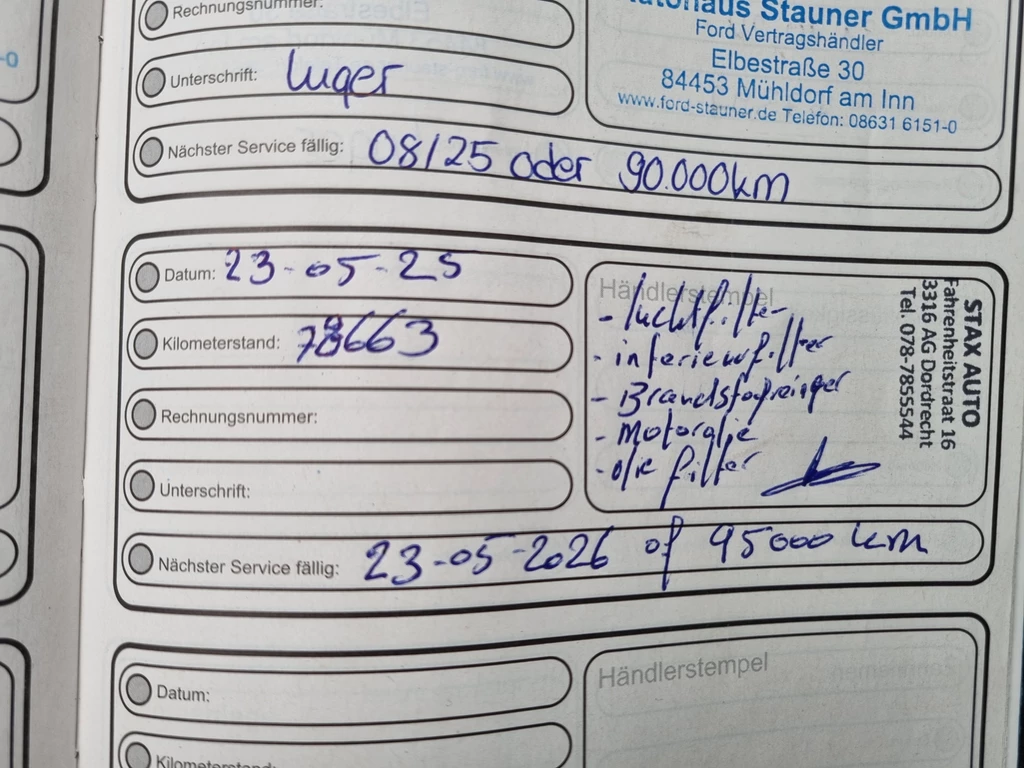 -0
Rechnungsnummer:
Autohaus Stauner GmbH
Ford Vertragshändler
Elbestraße 30
84453 Mühldorf am Inn
www.ford-stauner.de Telefon: 08631 6151-0
Unterschrift: Luger
Nächster Service fällig: 08/25 oder 90.000km
Datum: 23-05-25
Kilometerstand: 78663
Rechnungsnummer:
Unterschrift:
Händlerstempel
- luchtfilter
- interieurfilter
- Brandstofreiniger
- Motorolie
- olie filter
STAX AUTO
Fahrenheitstraat 16
3316 AG Dordrecht
Tel. 078-7855544
Nächster Service fällig: 23-05-2026 of 95000 km
Datum:
Händlerstempel
Kilometerstand: